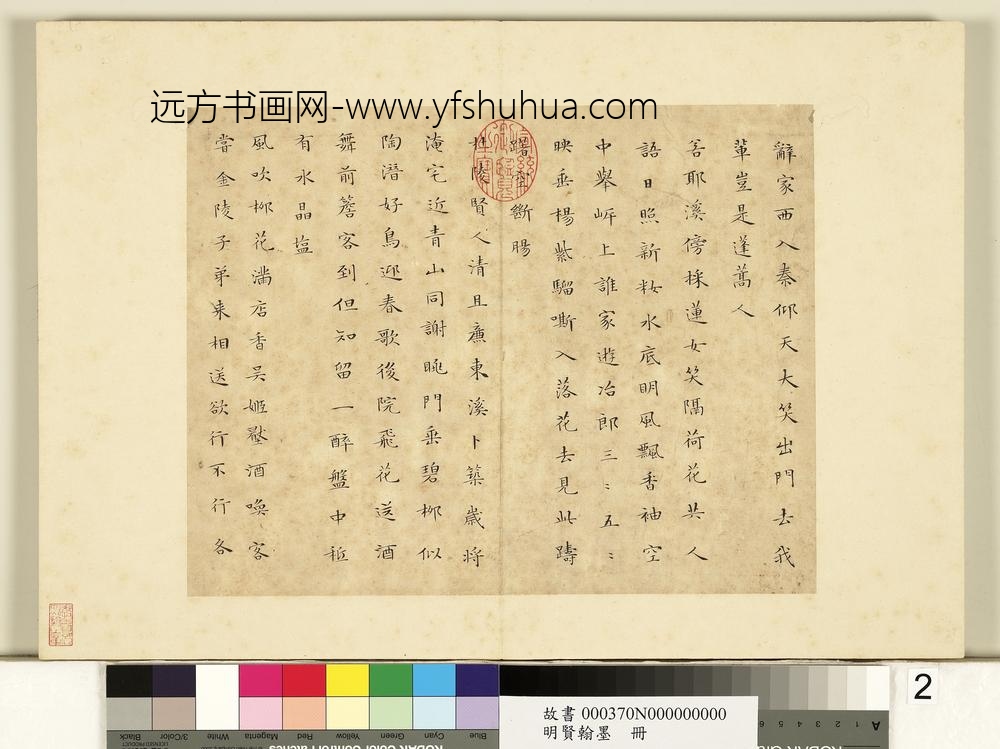 远方书画网-www.yfshuhua.com
辭家西入秦仰天大笑出門去我
輩豈是蓬蒿人
若耶溪傍採蓮女笑隔荷花共人
語日照新粧水底明風飄香袖空
中舉岸上誰家遊冶郎三〻五〻
映垂楊紫騮嘶入落花去見此躊
躇空斷腸
杜陵賢人清且廉東溪卜築歲將
淹宅近青山同謝眺門垂碧柳似
陶潛好鳥迎春歌後院飛花送酒
舞前簷客到但知留一醉盤中秪
有水晶塩
風吹柳花滿店香吳姬壓酒喚、客
嘗金陵子弟來相送欲行不行各
2
故書 000370N000000000
明賢翰墨 冊
Black
3/Color
White
Magenta
Red
Yellow
Green
Cyan
Blue
A 1 2 3 4 5 6